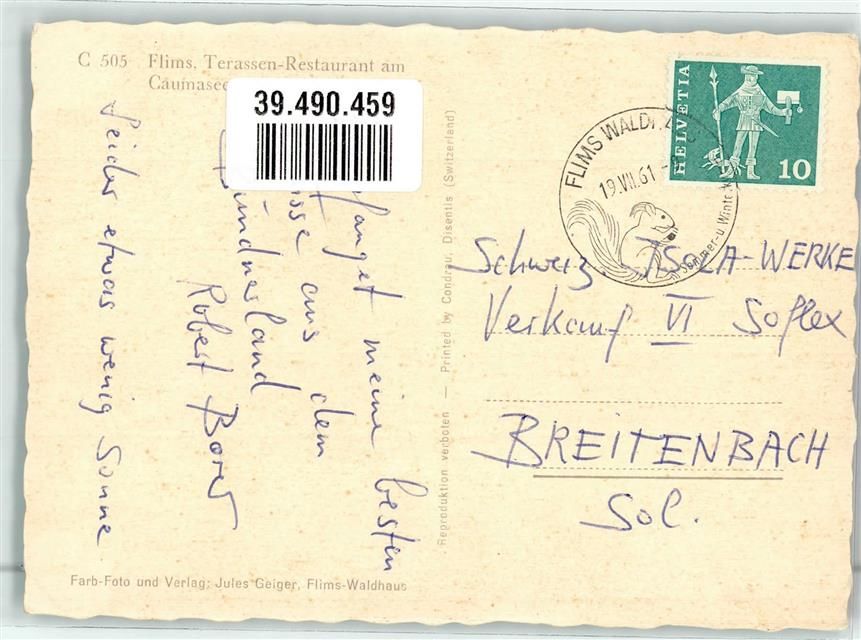 C 505 Flims. Terassen-Restaurant am
Caumasee
39.490.459
meine besten
aus dem
Bündnerland
Robert Borer
Leider etwas wenig Sonne
Farb-Foto und Verlag: Jules Geiger, Flims-Waldhaus
Reproduktion verboten — Printed by Condrau, Disentis (Switzerland)
HELVETIA
10
FLIMS WALDH
19.VII.61
Sommer-u Winterk
Schweiz ISOLA-WERKE
Verkauf VI Soflex
BREITENBACH
Sol.